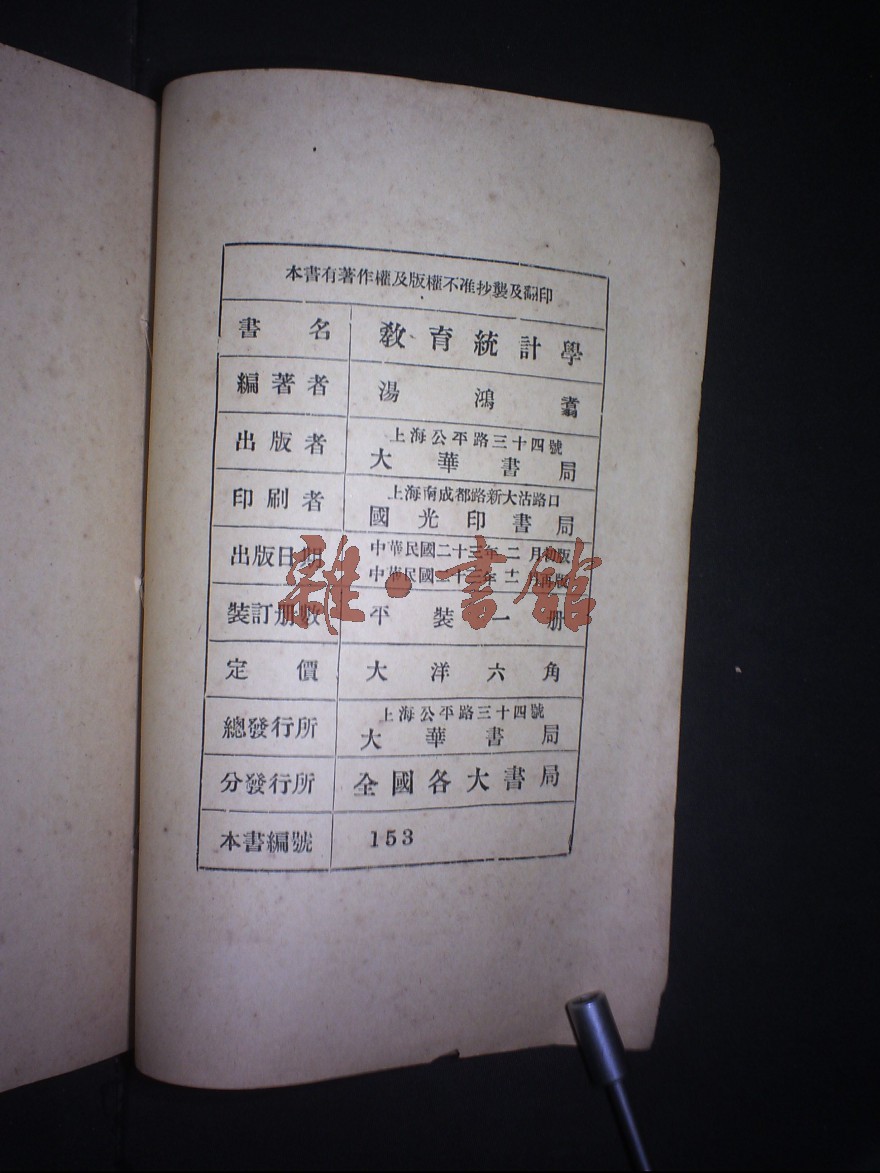 本書有著作權及版權不准抄襲及翻印
書名 教育統計學
編著者 湯鴻翥
出版者 上海公平路三十四號
大華書局
印刷者 上海南成都路新大沽路口
國光印書局
出版日期 中華民國二十三年二月初版
中華民國二十三年十二月再版
裝訂册數 平裝一册
定價 大洋六角
總發行所 上海公平路三十四號
大華書局
分發行所 全國各大書局
本書編號 153
雜·書館